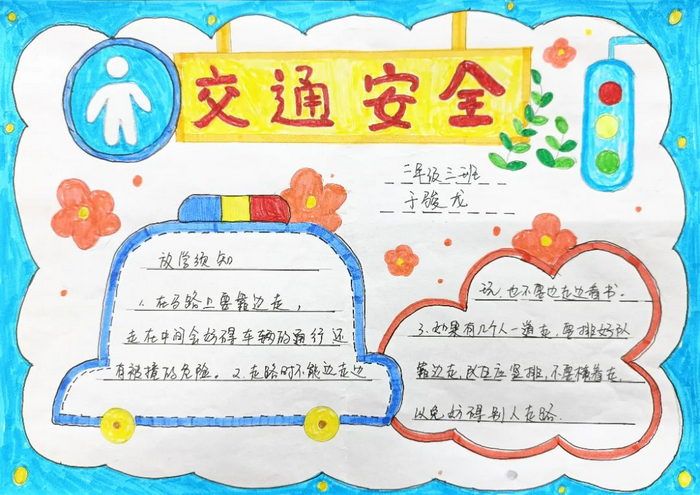 交通安全
二年级三班
于骏龙
放学须知
1. 在马路上要靠边走，
走在中间会妨碍车辆的通行还
有被撞的危险。2. 走路时不能边走边
玩. 也不要边走边看书.
3. 如果有几个人一道走，要排好队
靠边走，这且应竖排，不要横着走，
以免妨碍别人走路.